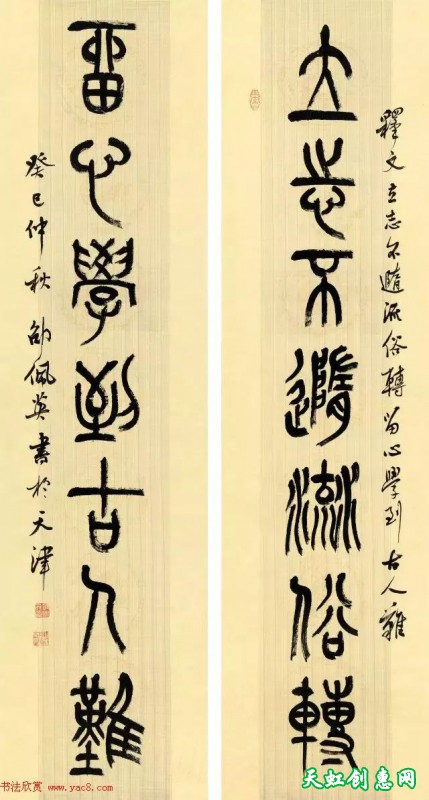 立志不隨流俗轉
釋文立志不隨流俗轉留心學到古人難
留心學到古人難
癸巳仲秋邵佩英書於天津
书法欣赏 www.yac8.com
天虹创意网